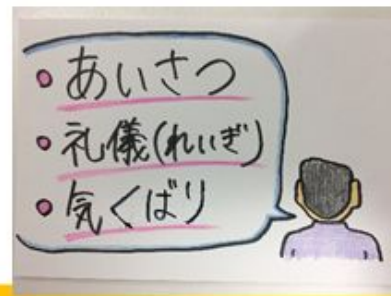 ・あいさつ
・礼儀(れいぎ)
・気くばり